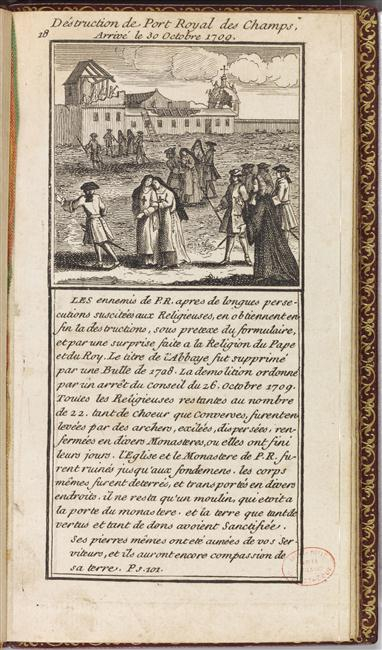 Déstruction de Port Royal des Champs,
18
Arrivé le 30 Octobre 1709.
LES ennemis de P.R. apres de longues perse-
cutions suscitées aux Religieuses, en obtiennent en
fin la destructions, sous pretexe du formulaire,
et par une surprise faite a la Religion du Pape
et du Roy. Le titre de l'Abbaye fut supprimé
par une Bulle de 1708. La demolition ordonné
par in arrêt du conseil du 26. Octobre 1709.
Toutes les Religieuses restantes au nombre
de 22. tant de Choeur que Converces, furent en-
levées par des archers, exilées, dispersées, ren-
fermées en divers Monasteres, ou elles ont fini
leurs jours. l'Eglise et le Monastere de P.R. fu-
rent ruinés jusqu'aux fondemens. les corps
mêmes furent deterrés, et transportés en divers
endroits. il ne resta qu'un moulin, qui etoit a
la porte du monastere. et la terre que tant de
vertus et tant de dons avoient Sanctifiée.
Ses pierres mêmes ont eté aimées de vos Ser-
viteurs, et ils auront encore compassion de
sa terre. Ps. 101.